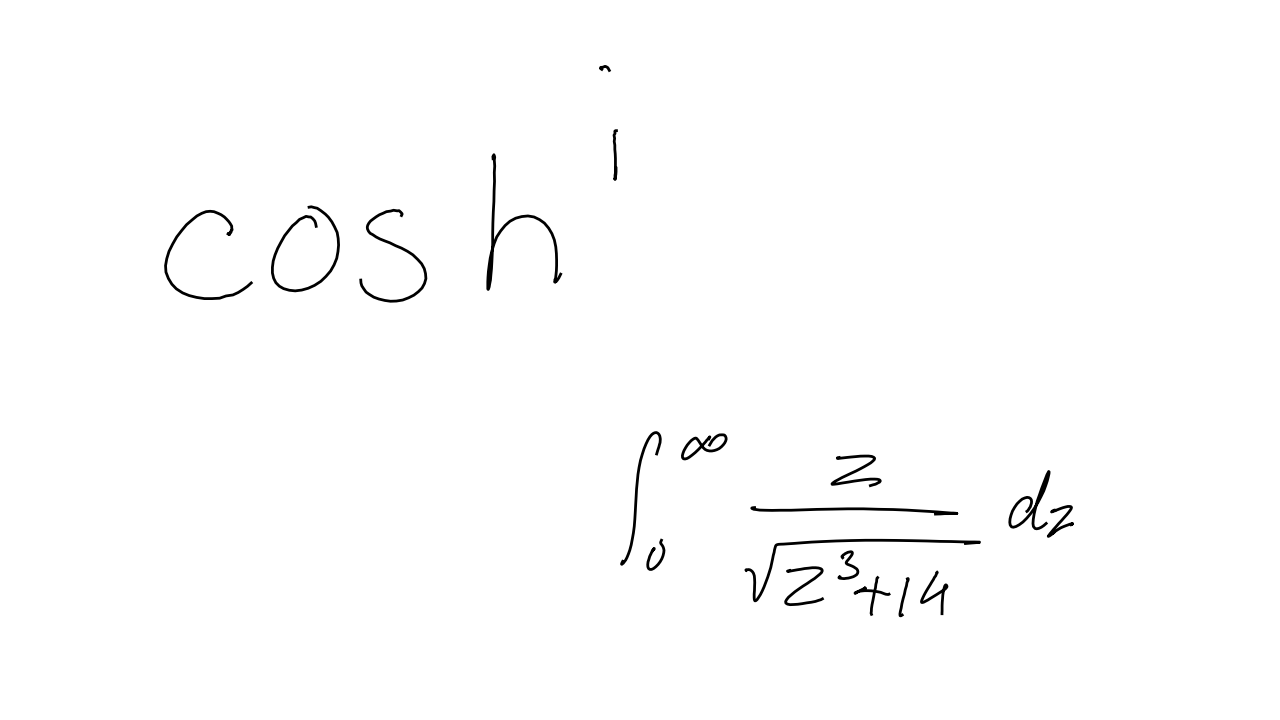 cosh^i
\int_0^\infty \frac{z}{\sqrt{z^3+14}} dz